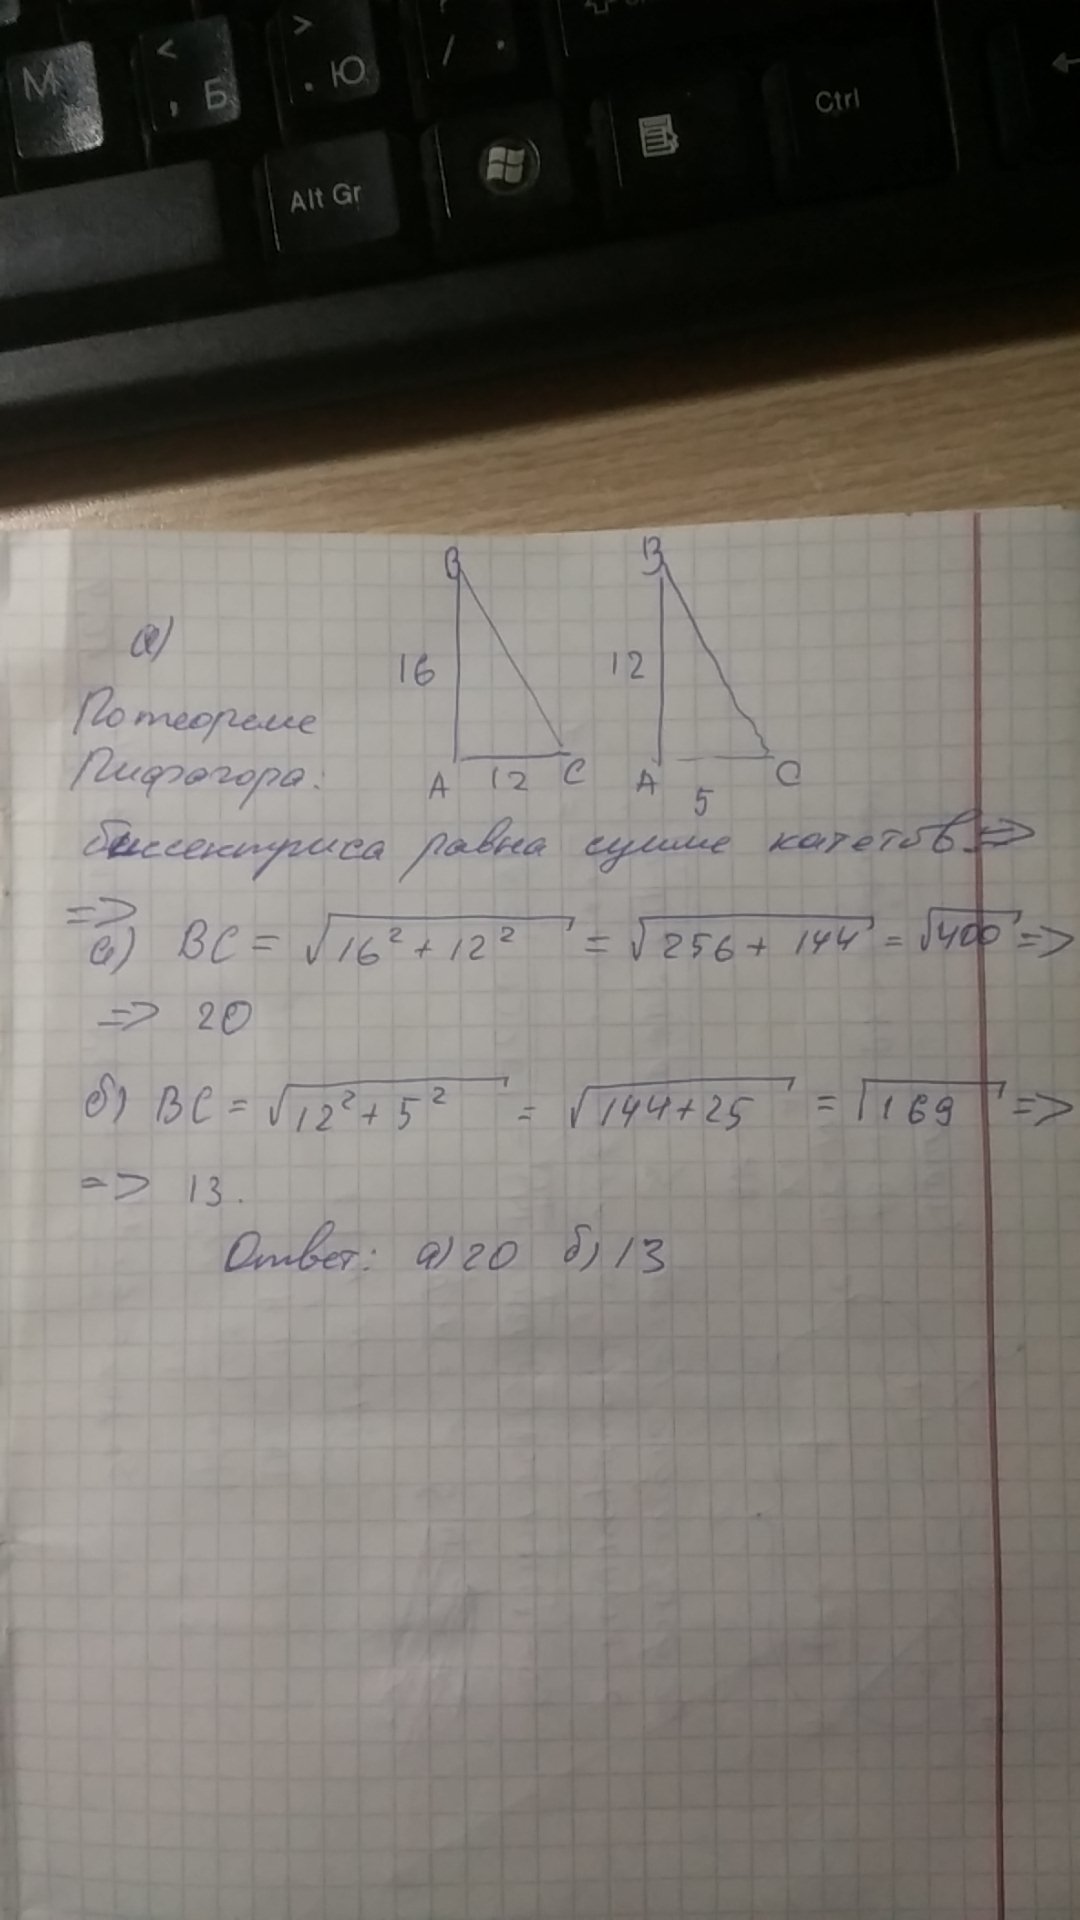 М < , Б > . Ю / . Ctrl
Alt Gr
а)
В В
16 12
По теореме
Пифагора:
А 12 С А 5 С
биссектриса равна сумме катетов =>
=>
а) BC = √16² + 12² = √256 + 144 = √400 =>
=> 20
б) BC = √12² + 5² = √144+25 = √169 =>
=> 13.
Ответ: а) 20 б) 13